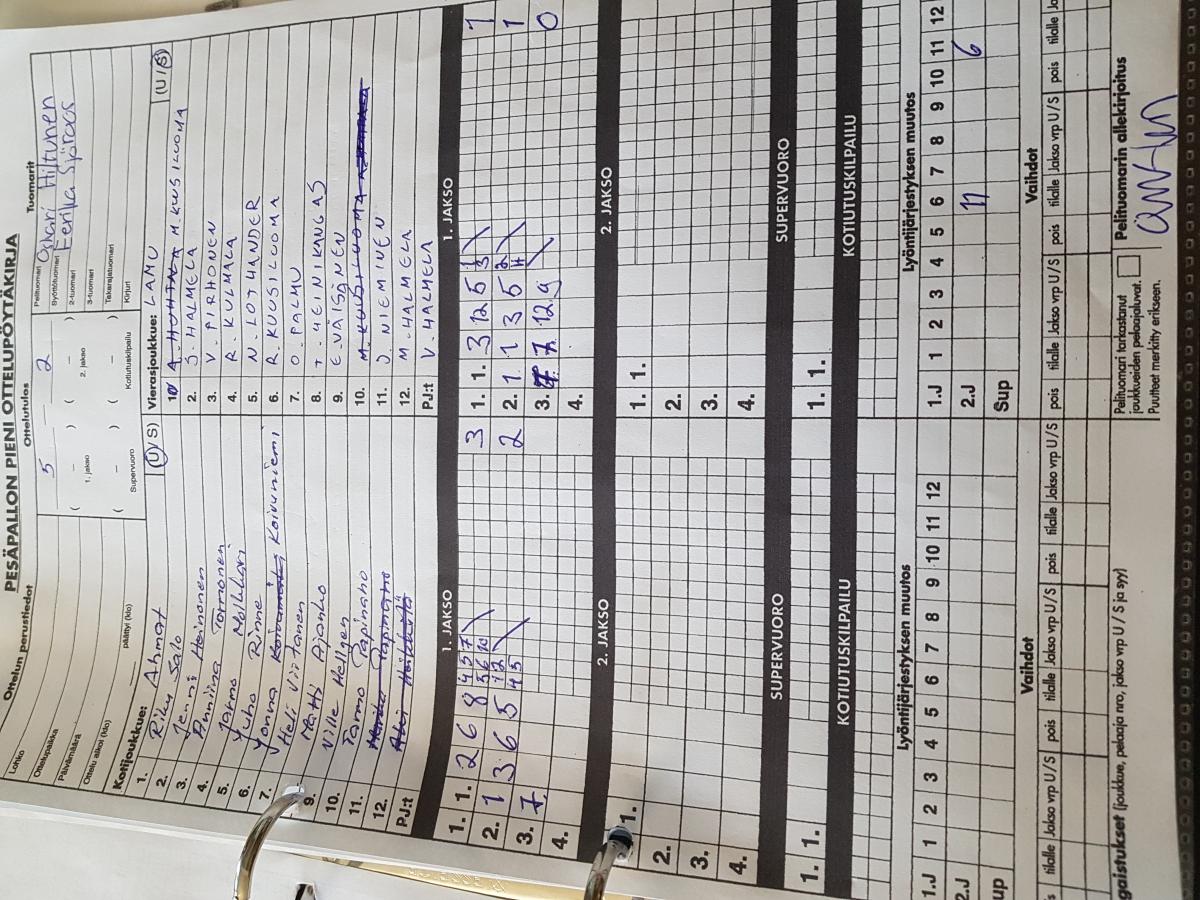 PESÄPALLON PIENI OTTELUPÖYTÄKIRJA
Ottelun perustiedot
Ottelutulos
Tuomarit
Lohko
Ottelupaikka
Päivämäärä
Ottelu alkoi (klo)
päättyi (klo)
5 – 2
( – ) ( – )
1. jakso 2. jakso
( – ) ( – )
Supervuoro Kotiutuskilpailu
Pelituomari Oskari Hiltunen
Syöttötuomari Eerika Sjöroos
2-tuomari
3-tuomari
Takarajatuomari
Kirjuri
Kotijoukkue: (U/S)
1. Riku Ahmat
2. Riku Salo
3. Jenni Heinonen
4. Anniina Tormonen
5. Jarmo
6. Juho Rinne
7. Jonna Koivuniemi
8. Heli Viitanen
9. Matti Ajanko
10. Ville Hellgen
11. Tarmo Tapinaho
12.
PJ:t
Vierasjoukkue: LAMU (U/S)
1. A. HUHTALA M. KUUSILUOMA
2. J. HALMELA
3. V. PIRHONEN
4. R. KULMALA
5. N. LOTHANDER
6. R. KUUSILUOMA
7. O. PALMU
8. T. HEINIKANGAS
9. E. VÄISÄNEN
10. M. KUUSILUOMA
11. J. NIEMINEN
12. M. HALMELA
PJ:t V. HALMELA
1. JAKSO 1. JAKSO
1. 1. 2 6 8 4 5 7 3
2. 1 3 6 5 6 10 2
3. 7 5
4.
1. 1. 3 12 5 1
2. 1 1 3 5 1
3. 7 12 9 0
4.
2. JAKSO 2. JAKSO
1. 1. 1. 1.
2. 2.
3. 3.
4. 4.
SUPERVUORO SUPERVUORO
1. 1. 1. 1.
KOTIUTUSKILPAILU KOTIUTUSKILPAILU
Lyöntijärjestyksen muutos Lyöntijärjestyksen muutos
1.J 1 2 3 4 5 6 7 8 9 10 11 12 1.J 1 2 3 4 5 6 7 8 9 10 11 12
2.J 2.J 11 6
up Sup
Vaihdot Vaihdot
tilalle Jakso vrp U/S pois tilalle Jakso vrp U/S pois tilalle Jakso vrp U/S pois tilalle Jakso vrp U/S pois tilalle Jakso vrp U/S pois tilalle Jo
gaistukset (joukkue, pelaaja nro, jakso vrp U / S ja syy)
Pelituomari tarkastanut
joukkueiden pelaajaluvat.
Puutteet merkitty erikseen.
Pelituomarin allekirjoitus